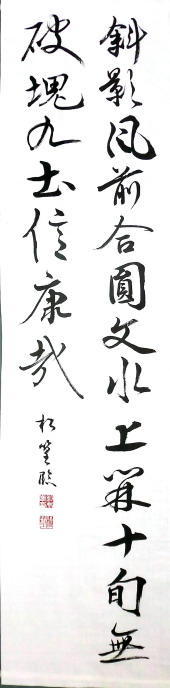 斜影風前合圓文水上開十旬無
破塊九土信康哉
松篁臨